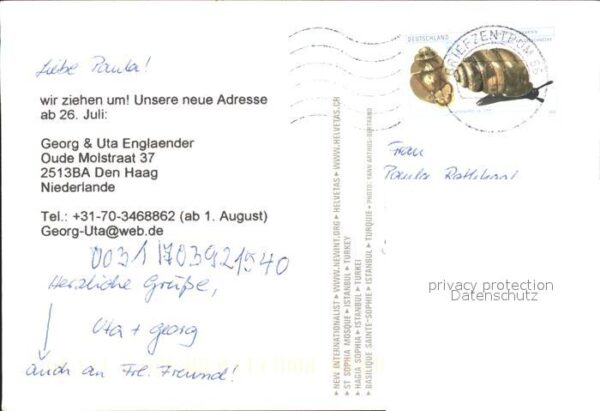 Liebe Paula!
wir ziehen um! Unsere neue Adresse
ab 26. Juli:
Georg & Uta Englaender
Oude Molstraat 37
2513BA Den Haag
Niederlande
Tel.: +31-70-3468862 (ab 1. August)
Georg-Uta@web.de
0031703921540
Herzliche Grüße,
Uta + Georg
auch an Frl. Freund!
▸ NEW INTERNATIONALIST ▸ WWW.NEWINT.ORG ▸ HELVETAS ▸ WWW.HELVETAS.CH
▸ ST SOPHIA MOSQUE ▸ ISTANBUL ▸ TURKEY
▸ HAGIA SOPHIA ▸ ISTANBUL ▸ TURKEI
▸ BASILIQUE SAINTE-SOPHIE ▸ ISTANBUL ▸ TURQUIE ▸ PHOTO: YANN ARTHUS-BERTRAND
DEUTSCHLAND
BRIEFZENTRUM
Frau
Paula
privacy protection
Datenschutz